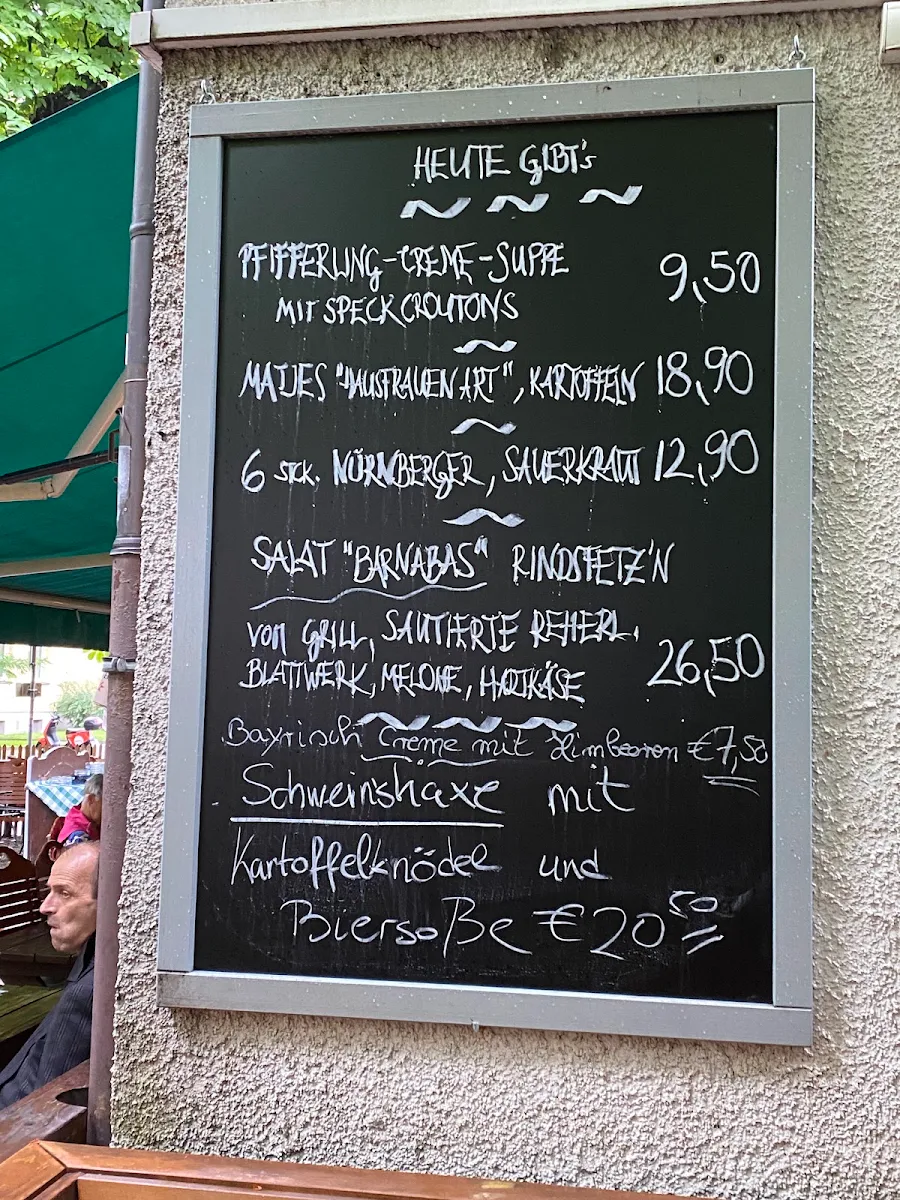 HEUTE GIBT's
PFIFFERLING-CREME-SUPPE 9,50
MIT SPECKCROUTONS
MATJES "HAUSFRAUEN ART", KARTOFFELN 18,90
6 STCK. NÜRNBERGER, SAUERKRAUT 12,90
SALAT "BARNABAS" RINDSFETZ'N
VOM GRILL, SAUTIERTE REHERL,
BLATTWERK, MELONE, HARTKÄSE 26,50
Bayrisch Creme mit Himbeeren €7,50
Schweinshaxe mit
Kartoffelknödel und
Biersoße €20 50